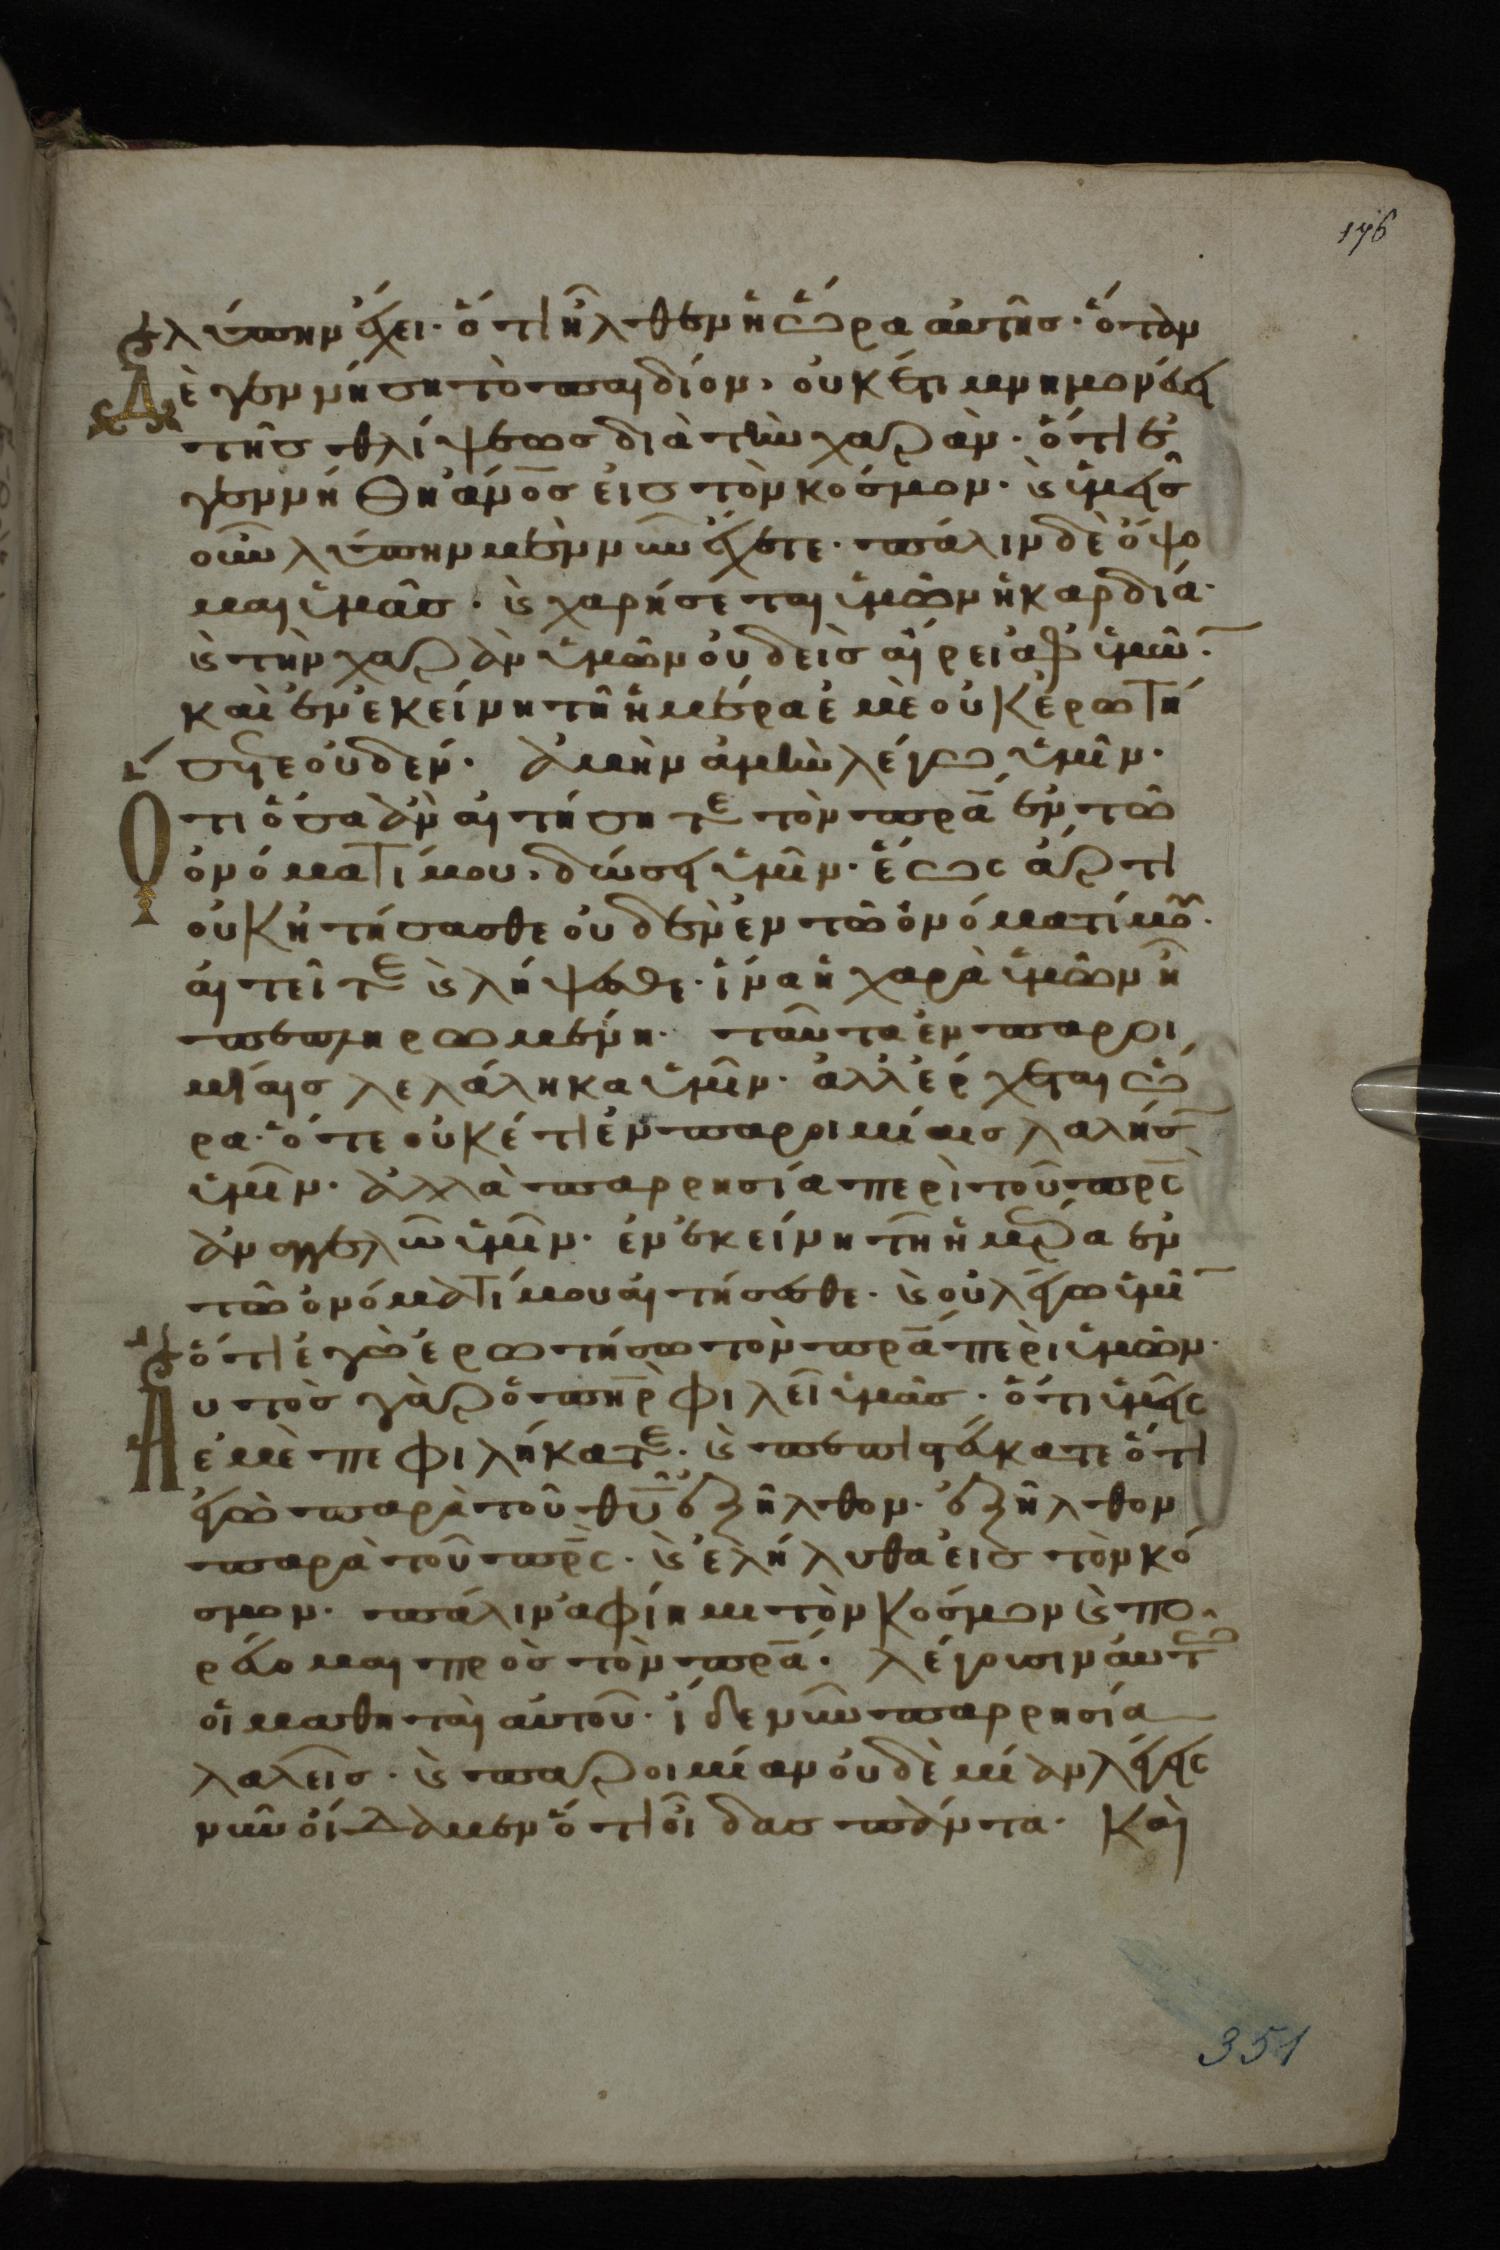 176
λύπην ἔχει· ὅτι ἦλθεν ἡ ὥρα αὐτῆς· ὅτὰν
Δὲ γεννήση τὸ παιδίον, οὐκέτι μνημονεύει
τῆς θλίψεως διὰ τὴν χαρὰν· ὅτι ἐ
γεννήθη ἀν̅ο̅ς εἰς τὸν κόσμον· ϗ ὑμεῖς
οὖν λύπην μὲν νῦν ἔχετε· πάλιν δὲ ὄψο
μαι ὑμᾶς· ϗ χαρήσεται ὑμῶν ἡ καρδία·
ϗ τὴν χαρὰν ὑμῶν οὐδεὶς αἴρει ἀφ' ὑμῶ̅·
καὶ ἐν ἐκείνη τῆ ἡμέρα ἐμὲ οὐκ ἐρωτή
σητε οὐδέν· ἀμὴν ἀμὴν λέγω ὑμῖν·
Ὅτι ὅσα ἂν αἰτήσητε τὸν π̅ρ̅α̅ ἐν τῶ
ὀνόματί μου, δώσει ὑμῖν· ἕως ἄρτι
οὐκ ἠτήσασθε οὐδὲν ἐν τῶ ὀνόματί μου·
αἰτεῖτε ϗ λήψεσθε· ἵνα ἡ χαρὰ ὑμῶν ἦ
πεπληρωμένη· ταῦτα ἐν παροι
μίαις λελάληκα ὑμῖν· ἀλλ' ἔρχεται ὥ
ρα· ὅτε οὐκέτι ἐν παροιμίαις λαλήσ̅
ὑμῖν· ἀλλὰ παρρησία περὶ τοῦ π̅ρ̅ς
ἀναγγελῶ ὑμῖν· ἐν ἐκείνη τῆ ἡμέρα ἐν
τῶ ὀνόματί μου αἰτήσεσθε· ϗ οὐ λέγω ὑμῖ̅
ὅτι ἐγὼ ἐρωτήσω τὸν π̅ρ̅α̅ περὶ ὑμῶν·
Αυτὸς γὰρ ὁ π̅η̅ρ̅ φιλεῖ ὑμᾶς· ὅτι ὑμεῖς
ἐμὲ πεφιλήκατε· ϗ πεπιστεύκατε ὅτι
ἐγὼ παρὰ τοῦ θ̅υ̅ ἐξῆλθον· ἐξῆλθον
παρὰ τοῦ π̅ρ̅ς· ϗ ἐλήλυθα εἰς τὸν κό
σμον· πάλιν ἀφίημι τὸν κόσμον ϗ πο
ρεύομαι πρὸς τὸν π̅ρ̅α̅· λέγουσιν αὐτῶ
οἱ μαθηταὶ αὐτοῦ· ἴδε νῦν παρρησία
λαλεῖς· ϗ παροιμίαν οὐδὲ μίαν λέγεις
νῦν οἴδαμεν ὅτι οἶδας πάντα· Καὶ
351